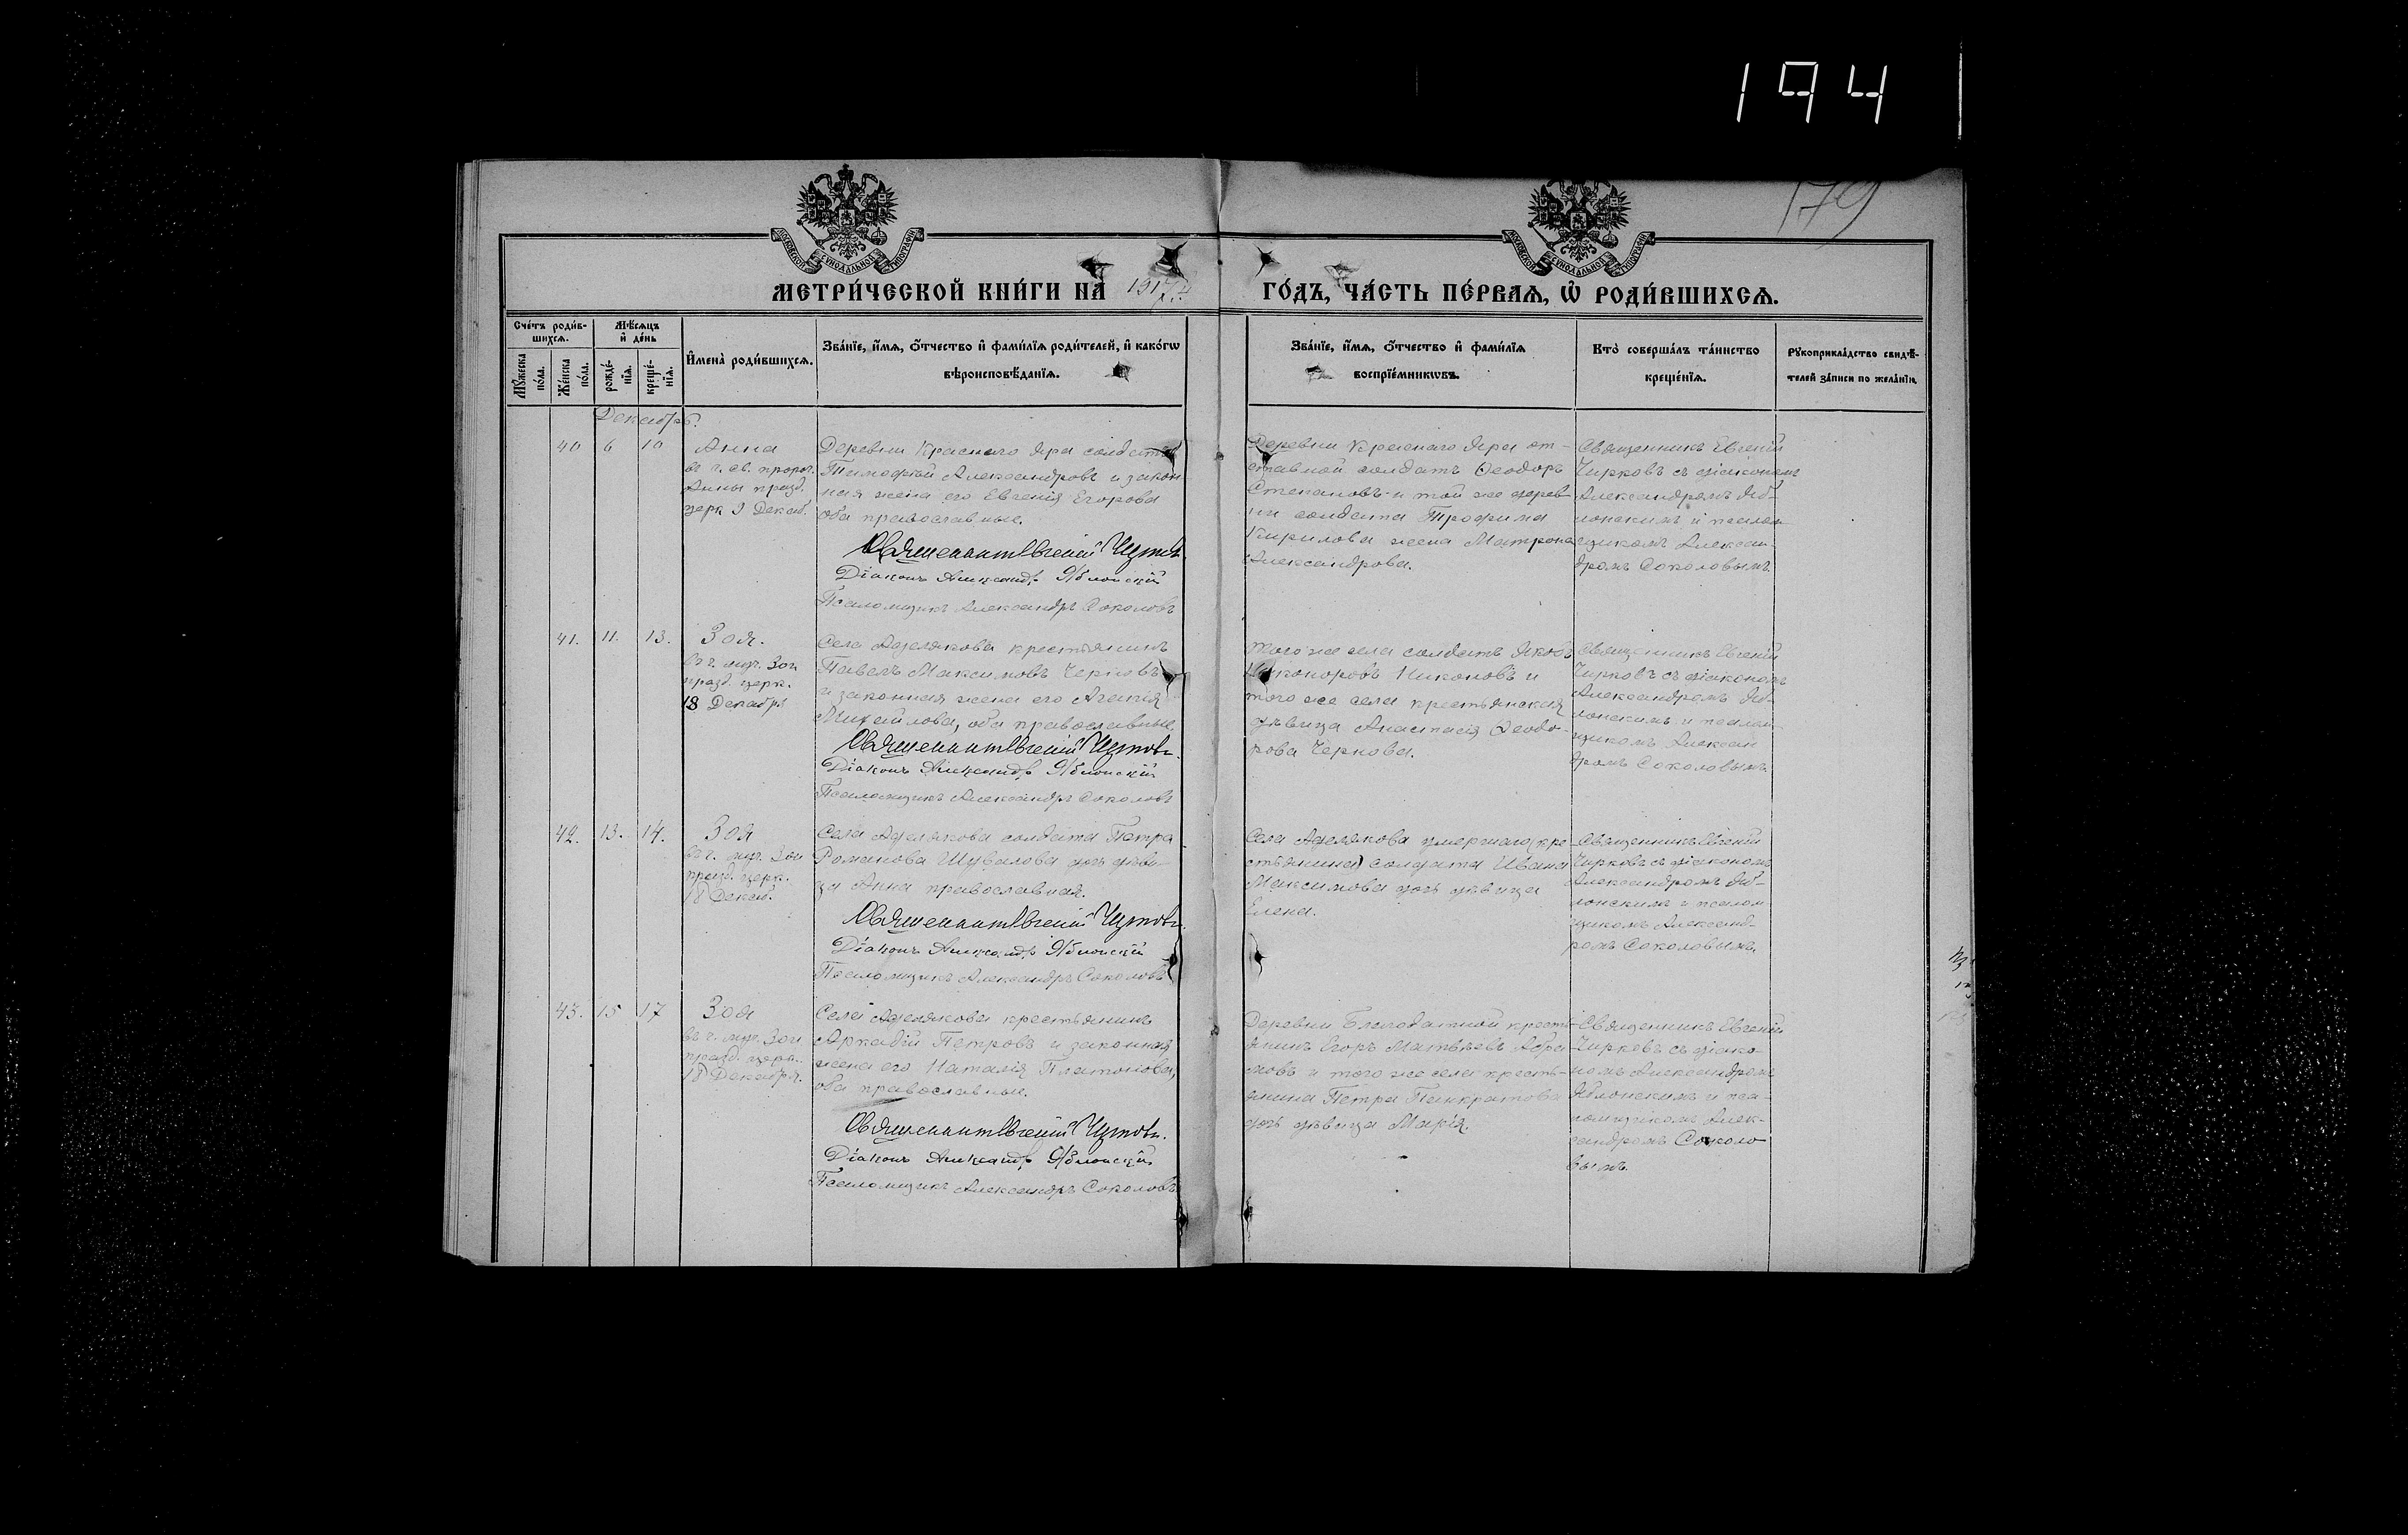 194
179
МОСКОВСКОЙ СѴНОДАЛЬНОЙ ТИПОГРАФІИ
МОСКОВСКОЙ СѴНОДАЛЬНОЙ ТИПОГРАФІИ
МЕТРИ́ЧЕСКОЙ КНИ́ГИ НА 1917 ГО́ДЪ, ЧА́СТЬ ПЕ́РВАЯ, Ѡ҆ РОДИ́ВШИХСЯ.
Сче́тъ роди́в-
шихся.
Мꙋ́жеска по́ла.
Же́нска по́ла.
Мѣ́сяцъ
и҆ де́нь
рожде́-
нїя.
креще́-
нїя.
И҆мена̀ роди́вшихся.
Зва́нїе, и҆́мя, ѻ҆́тчество и҆ фами́лїя роди́телей, и҆ како́гѡ
вѣроисповѣ́данїя.
Зва́нїе, и҆́мя, ѻ҆́тчество и҆ фами́лїя
воспрїе́мникѡвъ.
Кто̀ соверша́лъ та́инство
креще́нїя.
Рꙋкоприкла́дство свидѣ́-
телей за́писи по жела́нїю.
Декабрь.
40 6 10 Анна
въ ч. св. пророч.
Анны празд.
церк 9 Декаб.
Деревни Краснаго Яра солдатъ
Тимофей Александровъ и закон
ная жена его Евгенія Егорова
оба православные.
Священникъ Евгеній Чирковъ
Діаконъ Александръ Яблонскій
Псаломщикъ Александръ Соколовъ
Деревни Краснаго Яра от-
ставной солдатъ Ѳеодоръ
Степановъ и той же дерев-
ни солдата Трофима
Кирилова жена Матрона
Александрова.
Священникъ Евгеній
Чирковъ съ діакономъ
Александромъ Яб-
лонскимъ и псалом
щикомъ Алексан-
дромъ Соколовымъ.
41. 11. 13. Зоя.
въ ч. муч. Зои
празд. церк.
18 Декабря
Села Аделякова крестьянинъ
Павелъ Максимовъ Черновъ
и законная жена его Агапія
Михайлова, оба православные
Священникъ Евгеній Чирковъ.
Діаконъ Александръ Яблонскій
Псаломщикъ Александръ Соколовъ
того же села солдатъ Яковъ
Никоноровъ Никоновъ и
того же села крестьянская
дѣвица Анастасія Ѳеодо-
рова Чернова.
Священникъ Евгеній
Чирковъ съ діакономъ
Александромъ Яб-
лонскимъ и псалом-
щикомъ Алексан
дромъ Соколовымъ
42. 13. 14. Зоя
въ ч. муч. Зои
празд. церк.
18 Декаб.
Села Аделякова солдата Петра
Романова Шувалова дочь дѣви-
ца Анна православная.
Священникъ Евгеній Чирковъ.
Діаконъ Александръ Яблонскій
Псаломщикъ Александръ Соколовъ
Села Аделякова умершаго (кре
стьянина) солдата Ивана
Максимова дочь дѣвица
Елена.
Священникъ Евгеній
Чирковъ съ діакономъ
Александромъ Яб-
лонскимъ и псалом-
щикомъ Александ-
ромъ Соколовымъ.
43. 15 17 Зоя
въ ч. муч. Зои
празд. церк.
18 Декабря.
Села Аделякова крестьянинъ
Аркадій Петровъ и законная
жена его Наталія Платонова,
оба православные.
Священникъ Евгеній Чирковъ.
Діаконъ Александръ Яблонскій
Псаломщикъ Александръ Соколовъ
Деревни Благодатной кресть-
янинъ Егоръ Матвѣевъ Абра
мовъ и того же села кресть-
янина Петра Панкратова
дочь дѣвица Марія.
Священникъ Евгеній
Чирковъ съ діако-
номъ Александромъ
Яблонскимъ и пса-
ломщикомъ Алек-
сандромъ Соколо
вымъ.